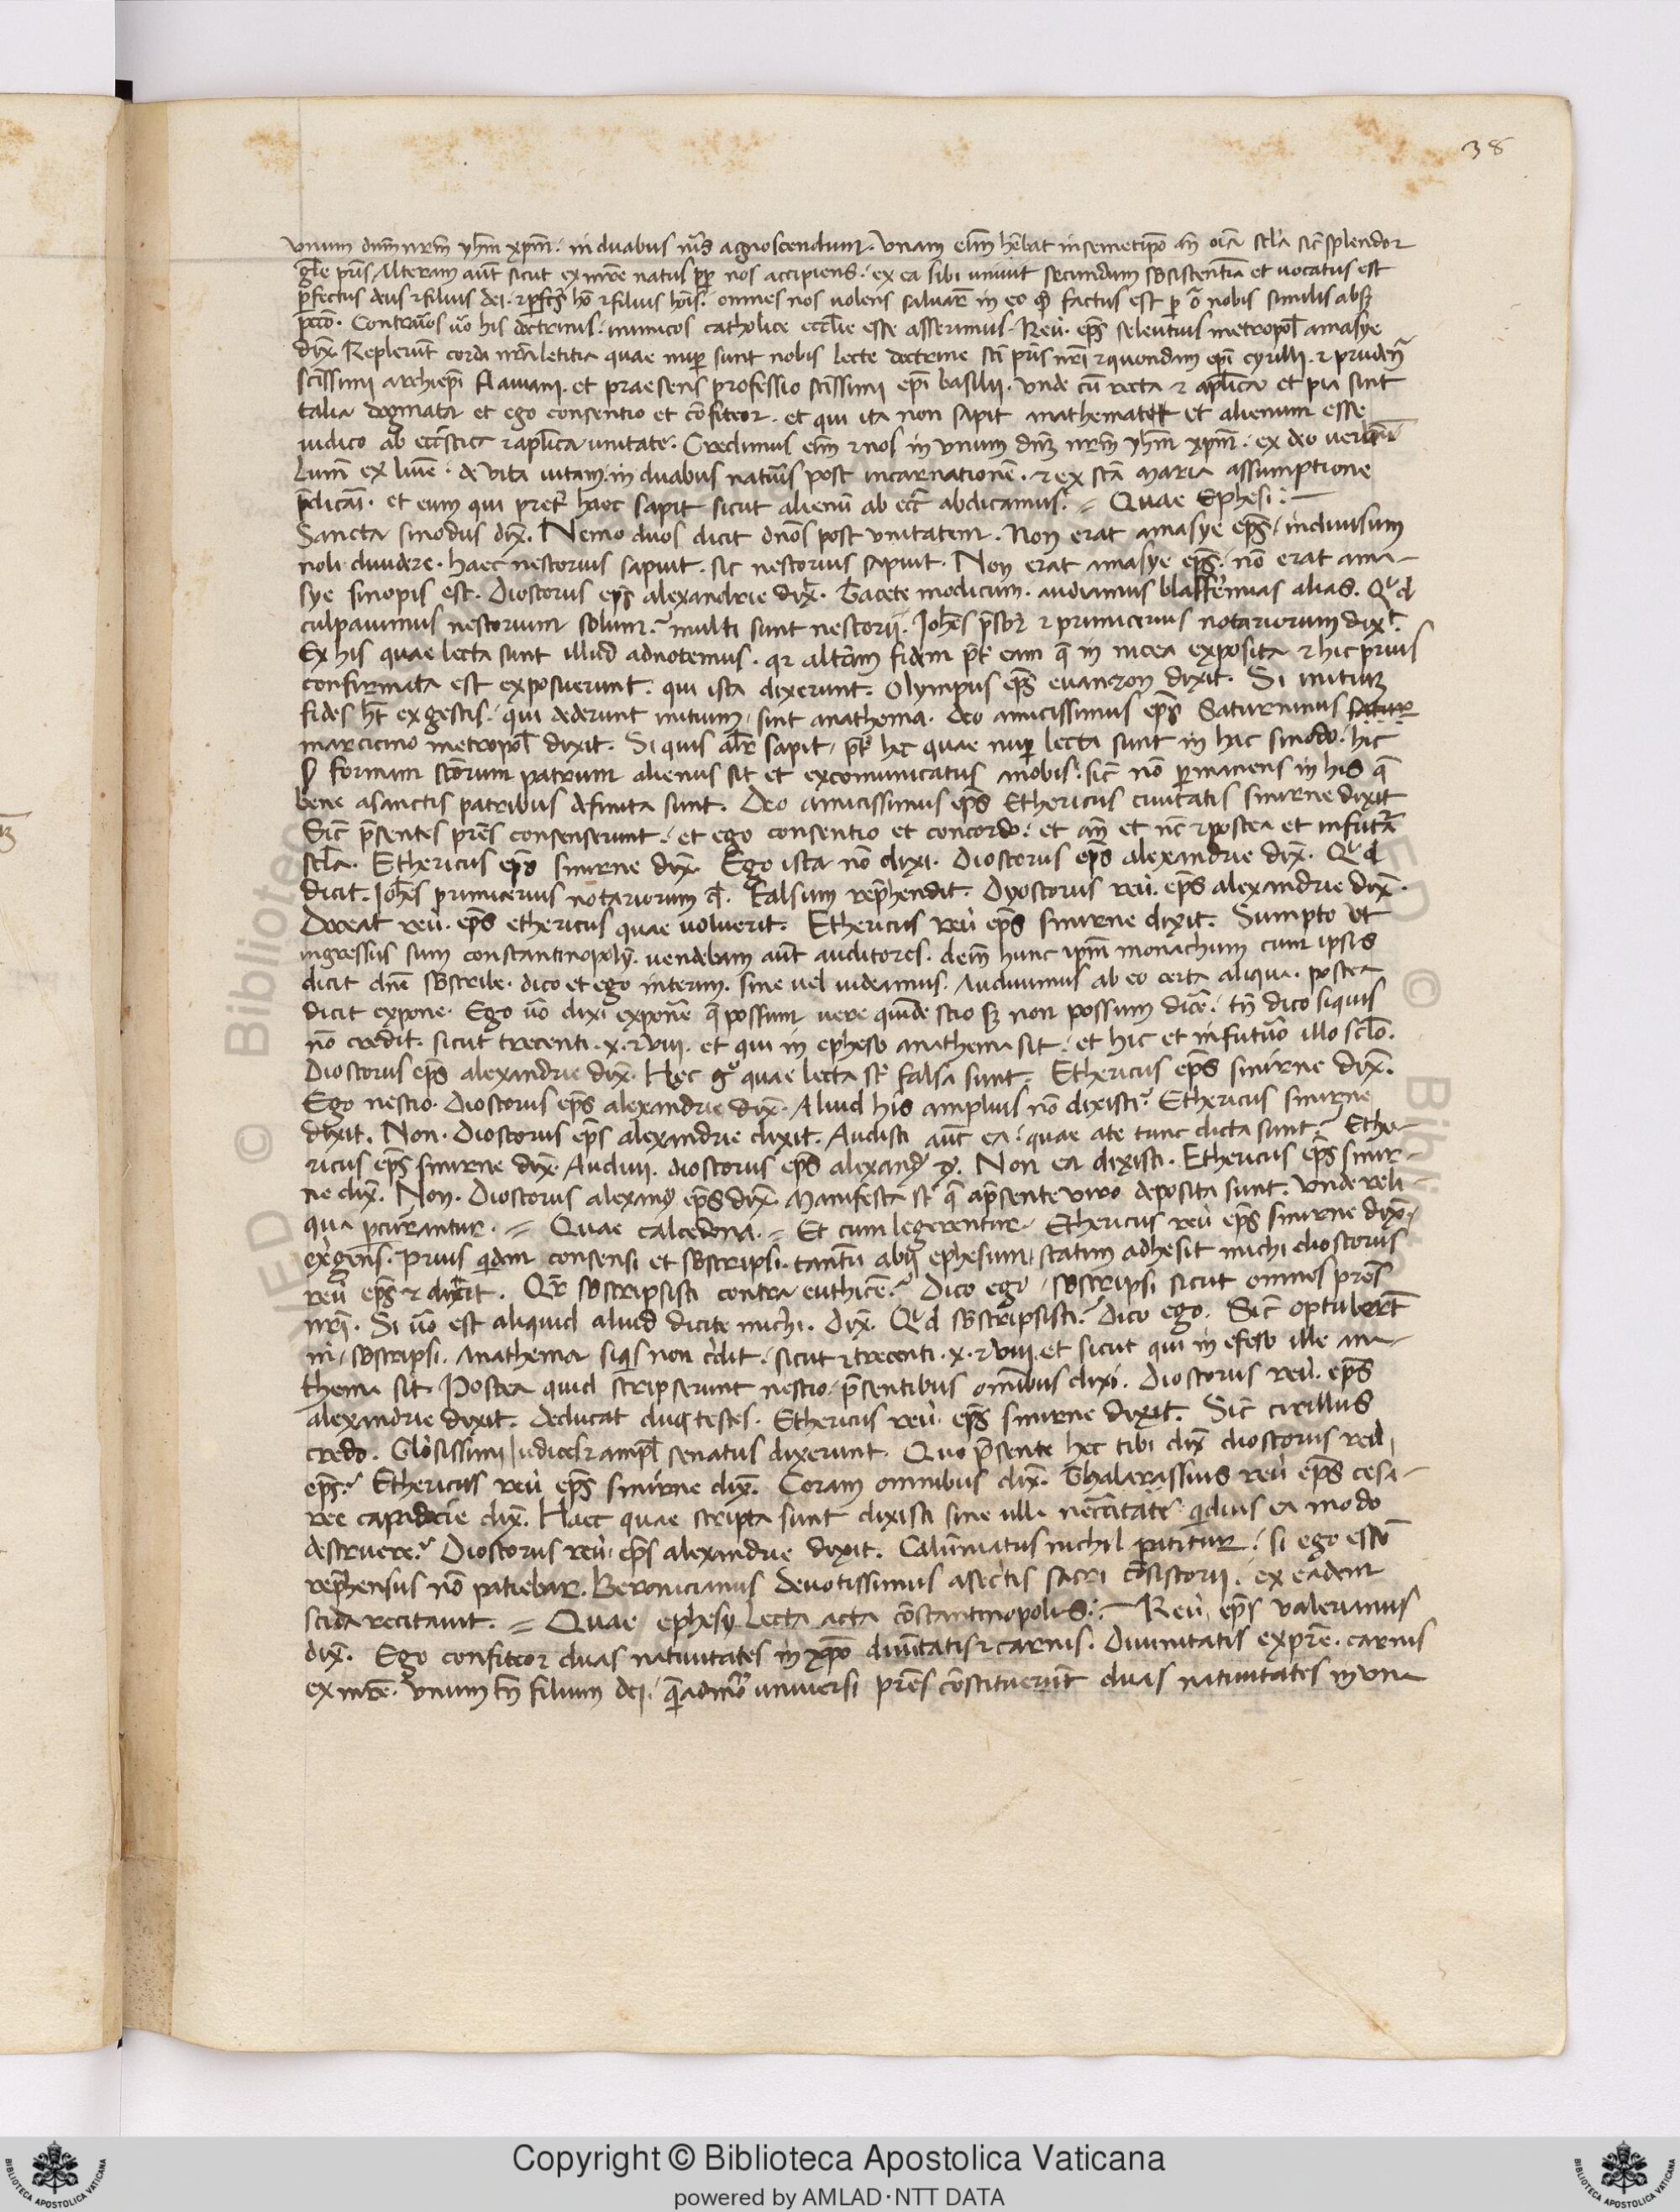 38
vnum dnm nrm yhm xpm. in duabus nris agnoscendum. Vnam em hebat in semetipo an oia scla sic splendor
gle pris. Alteram aut sicut ex mre natus pp nos accipiens. ex ea sibi uniuit secundum sbsistentia et uocatus est
perfectus deus & filius dei. & pfcs ho & filius hois. omnes nos uolens saluare in eo qd factus est per oia nobis similis absq
pecco. Contrarios uo his doctrinis. inimicos catholice ecclie esse asserimus. Reu. eps seleucus metropol amasye
dix. Replerunt corda nra letitia quae nup sunt nobis lecte doctrine sci pris nri & quondam epi cyrilli. &
scissimi archiepi flauiani. et praesens professio scissimi epi basilii. Vnde cu recta & aplica et pia sint
talia dogmata et ego consentio et confiteor. et qui ita non sapit anathematizo et alienum esse
iudico ab eccstica & aplica unitate. Credimus em & nos in vnum dnm nrm yhm xpm. ex deo verbum
lum ex lune. de vita uitam. in duabus naturis post incarnatione. & ex sca maria assumptione
pdicam. et eum qui preter haec sapit sicut alienu ab eccl abdicamus. = Quae Ephesi. —
Sancta sinodus dix. Nemo duos dicit dnos post vnitatem. Non erat amasye eps. indiuisum
noli diuidere. haec nestorius sapuit. sic nestorius sapuit. Non erat amasye eps. no erat ama-
sye sinopis est. Dioscorus eps alexandrie dix. Tacete modicum. audiamus blasfemias alias. Qd
culpauimus nestorium solum? multi sunt nestorii. Johes presbr & primicerius notariorum dixt.
Ex his quae lecta sunt illud adnotemus. qr alteram fidem pter eam q in nicea exposita & hic prius
confirmata est exposuerunt. qui ista dixerunt. Olympius eps euanzon dixit. Si initium
fides ht ex gestis. qui dederunt initium. sint anathema. deo amicissimus eps Saturninus satur
marcieno metropol dixit. Si quis alr sapit. pter hec quae nup lecta sunt in hac sinodo. hic
p formam scorum patrum alienus sit et excomunicatus anobis. sic no permanens in his q
bene asanctis patribus definita sunt. Deo amicissimus eps Ethericus ciuitatis smirne dixit
Sic presentes pres consenserunt. et ego consentio et concordo. et an et nc & postea et in futura
scla. Ethericus eps smirne dix. Ego ista no dixi. Dioscorus eps alexandrie dix. Qd
dicit. Johes primicerius notariorum d. Falsum rephendit. Dyoscorus reu. eps alexandrie dix.
Doceat reu. eps ethericus quae uoluerit. Ethericus reu eps smirne dixit. Sumpto ut
ingressus sum constantinopoly. uendebam aut auditores. dein hunc ipm monachum cum ipsis
dicit dne sbscribe. dico et ego interim. sine uel uideamus. Audiuimus ab eo certa aliqua. postea
dicit expone. Ego uo dixi expone q possum uere quide scio sz non possum dice. tn dico siquis
no credit. sicut trecenti. x. & viii. et qui in epheso anathema sit. et hic et in futuro illo sclo.
Dioscorus eps alexandrie dix. Hec go quae lecta st falsa sunt. Ethericus eps smirne dix.
Ego nescio. Dioscorus eps alexandrie dix. Aliud his amplius no dixisti? Ethericus smirne
dixit. Non. Dioscorus eps alexandrie dixit. Audisti aut ea. quae ate tunc dicta sunt? Ethe-
ricus eps smirne dix. Audiui. dioscorus eps alexand d. Non ea dixisti. Ethericus eps smir-
ne dix. Non. Dioscorus alexand eps dix. Manifesta st q apsente viro deposita sunt. Vnde reli-
qua pcurantur. = Quae calcedona. = Et cum legerentur. Ethericus reu eps smirne dix.
exgens. Prius qdem consensi et sbscripsi. tantu abii ephesum. statim adhesit michi dioscorus
reu eps & dixit. Qr sbscripsisti contra euthice? Dico ego. sbscripsi sicut omnes pres
nri. Si uo est aliquid aliud dicite michi. Dix. Qd sbscripsisti? Dico ego. Sic optulert
m. sbscripsi. Anathema siqs non cdit. sicut & trecenti. x. & viii. et sicut qui in efeso ille ana-
thema sit. Postea quid scripserunt nescio. presentibus omibus dixi. Dioscorus reu. eps
alexandrie dixit. Deducat duos testes. Ethericus reu. eps smirne dixit. Sic cirillus
credo. Glosissimi iudices & ampl senatus dixerunt. Quo psente hec tibi dix dioscorus reu
eps? Ethericus reu eps smirne dix. Coram omnibus dix. Thalarassius reu eps cesa-
ree capadocie dix. Haec quae scripta sunt dixisti sine ulla neccitate. qd uis ea modo
destruere? Dioscorus reu. eps alexandrie dixit. Calumatus nichil patitur. si ego essem
rephensus no patiebar. Beronicianus deuotissimus asecretis sacri consistorii. ex eadem
scida recitauit. = Quae ephesy lecta acta constantinopolis. — Reu. eps valerianus
dix. Ego confiteor duas natiuitates in xpo diuinitatis & carnis. Diuinitatis ex pre. carnis
ex mre. Vnum tn filium dei. qadmo uniuersi pres constituerunt duas natiuitates in una
Copyright © Biblioteca Apostolica Vaticana
powered by AMLAD·NTT DATA